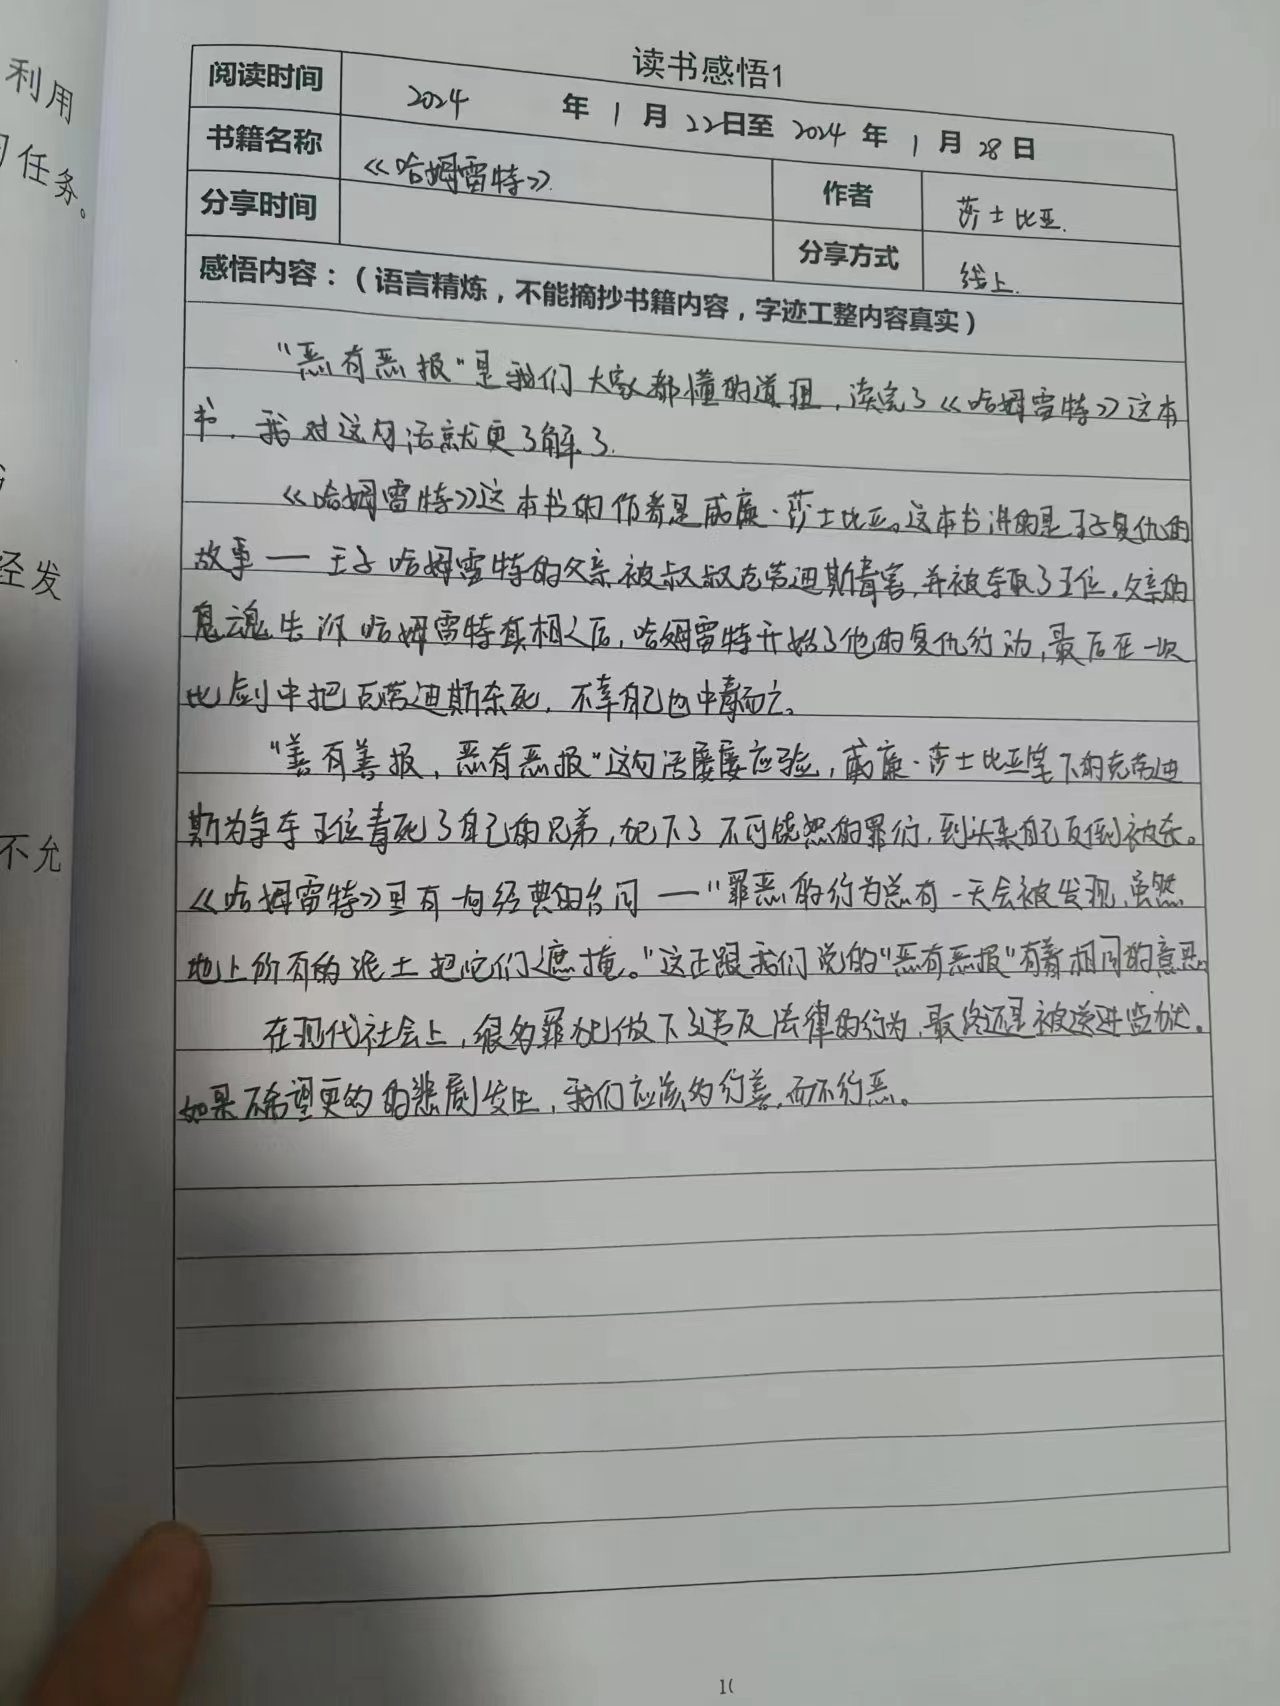 利用
任务。
经发
不允
读书感悟1
阅读时间 2024 年 1 月 22日至 2024 年 1 月 28 日
书籍名称 《哈姆雷特》 作者 莎士比亚.
分享时间 分享方式 线上.
感悟内容：（语言精炼，不能摘抄书籍内容，字迹工整内容真实）
“恶有恶报”是我们大家都懂的道理，读完了《哈姆雷特》这本
书，我对这句话就更了解了.
《哈姆雷特》这本书的作者是威廉·莎士比亚。这本书讲的是王子复仇的
故事—王子哈姆雷特的父亲被叔叔克劳迪斯毒害，并被夺取了王位。父亲的
鬼魂告诉哈姆雷特真相之后，哈姆雷特开始了他的复仇行动，最后在一次
比剑中把克劳迪斯杀死，不幸自己也中毒而亡。
“善有善报，恶有恶报”这句话屡屡应验，威廉·莎士比亚笔下的克劳迪
斯为争夺王位毒死了自己的兄弟，犯下了不可饶恕的罪行，到头来自己反倒被杀。
《哈姆雷特》里有一句经典的台词—“罪恶的行为总有一天会被发现，虽然
地上所有的泥土把它们遮掩。”这正跟我们说的“恶有恶报”有着相同的意思。
在现代社会上，很多罪犯做下了违反法律的行为，最终还是被送进监狱。
如果不希望更多的悲剧发生，我们应该多行善，而不行恶。